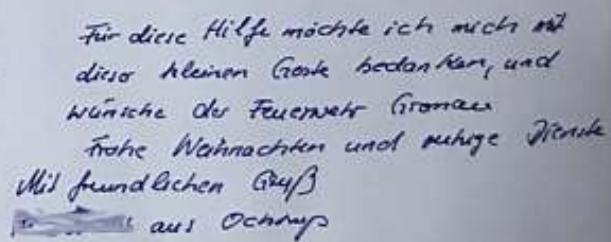 Für diese Hilfe möchte ich mich mit
dieser kleinen Geste bedanken, und
wünsche der Feuerwehr Gronau
Frohe Weihnachten und ruhige Dienste
Mit freundlichen Gruß
aus Ochtrup